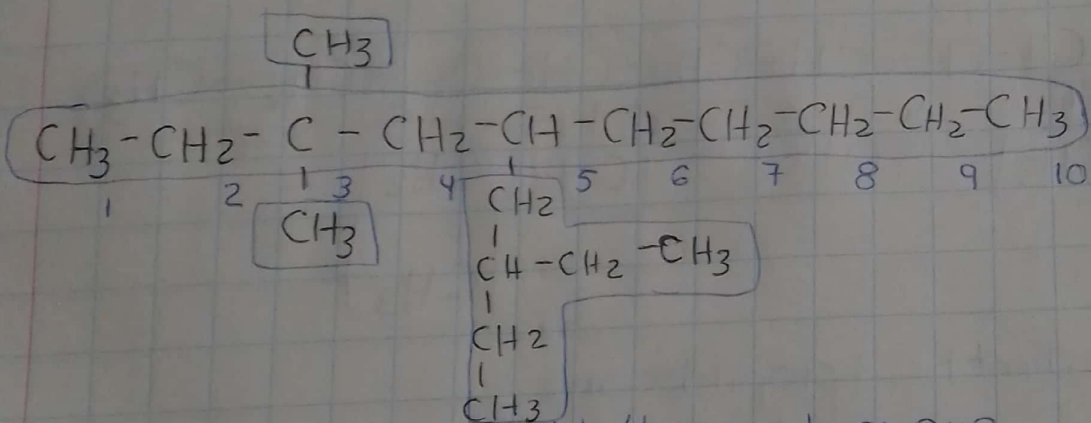 CH3
CH3-CH2-C-CH2-CH-CH2-CH2-CH2-CH2-CH3
1 2 3 4 5 6 7 8 9 10
CH3 CH2
CH-CH2-CH3
CH2
CH3